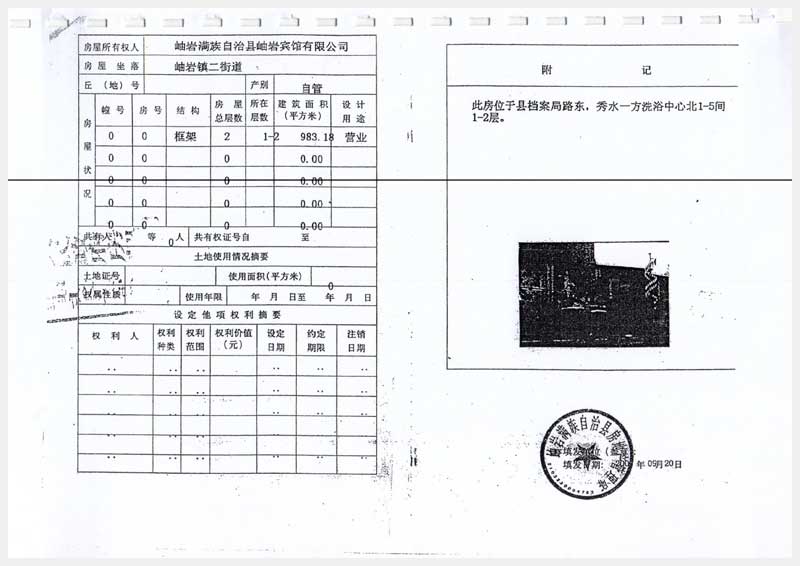 房屋所有权人 岫岩满族自治县岫岩宾馆有限公司
房屋坐落 岫岩镇二街道
丘（地）号 产别 自管
房屋状况
幢号 房号 结构 房屋总层数 所在层数 建筑面积（平方米） 设计用途
0 0 框架 2 1-2 983.18 营业
0 0 0 0.00
0 0 0 0.00
0 0 0 0.00
0 0 0 0.00
共有人 等 0 人 共有权证号自 至
土地使用情况摘要
土地证号 使用面积(平方米) 0
权属性质 使用年限 年 月 日至 年 月 日
设定他项权利摘要
权利人 权利种类 权利范围 权利价值（元） 设定日期 约定期限 注销日期
附 记
此房位于县档案局路东，秀水一方洗浴中心北1-5间
1-2层。
岫岩满族自治县房
填发单位（盖
填发日期： 200 年09月20日